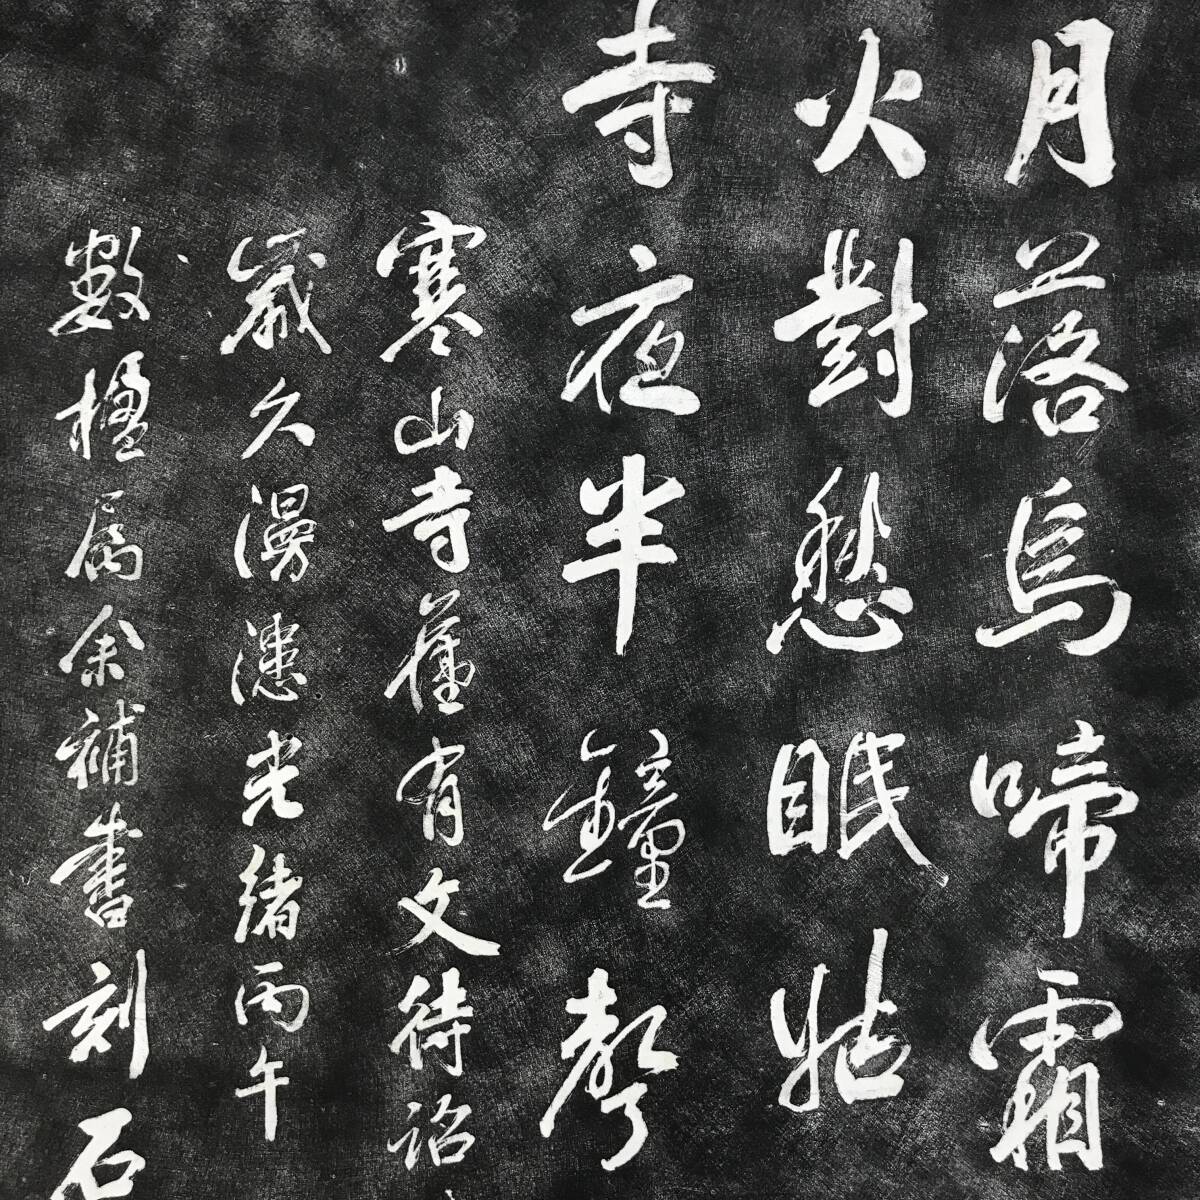 月落烏啼霜
火對愁眠姑
寺夜半鐘聲
寒山寺舊有文待詔
歲久漫漶光緒丙午
數楹属余補書刻石